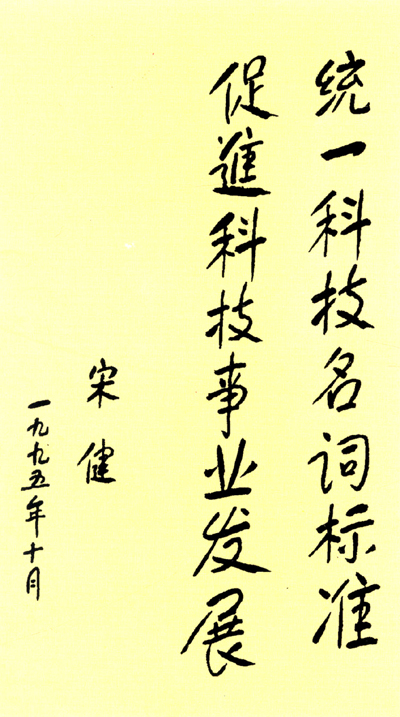 统一科技名词标准
促進科技事业发展
宋健
一九九五年十月